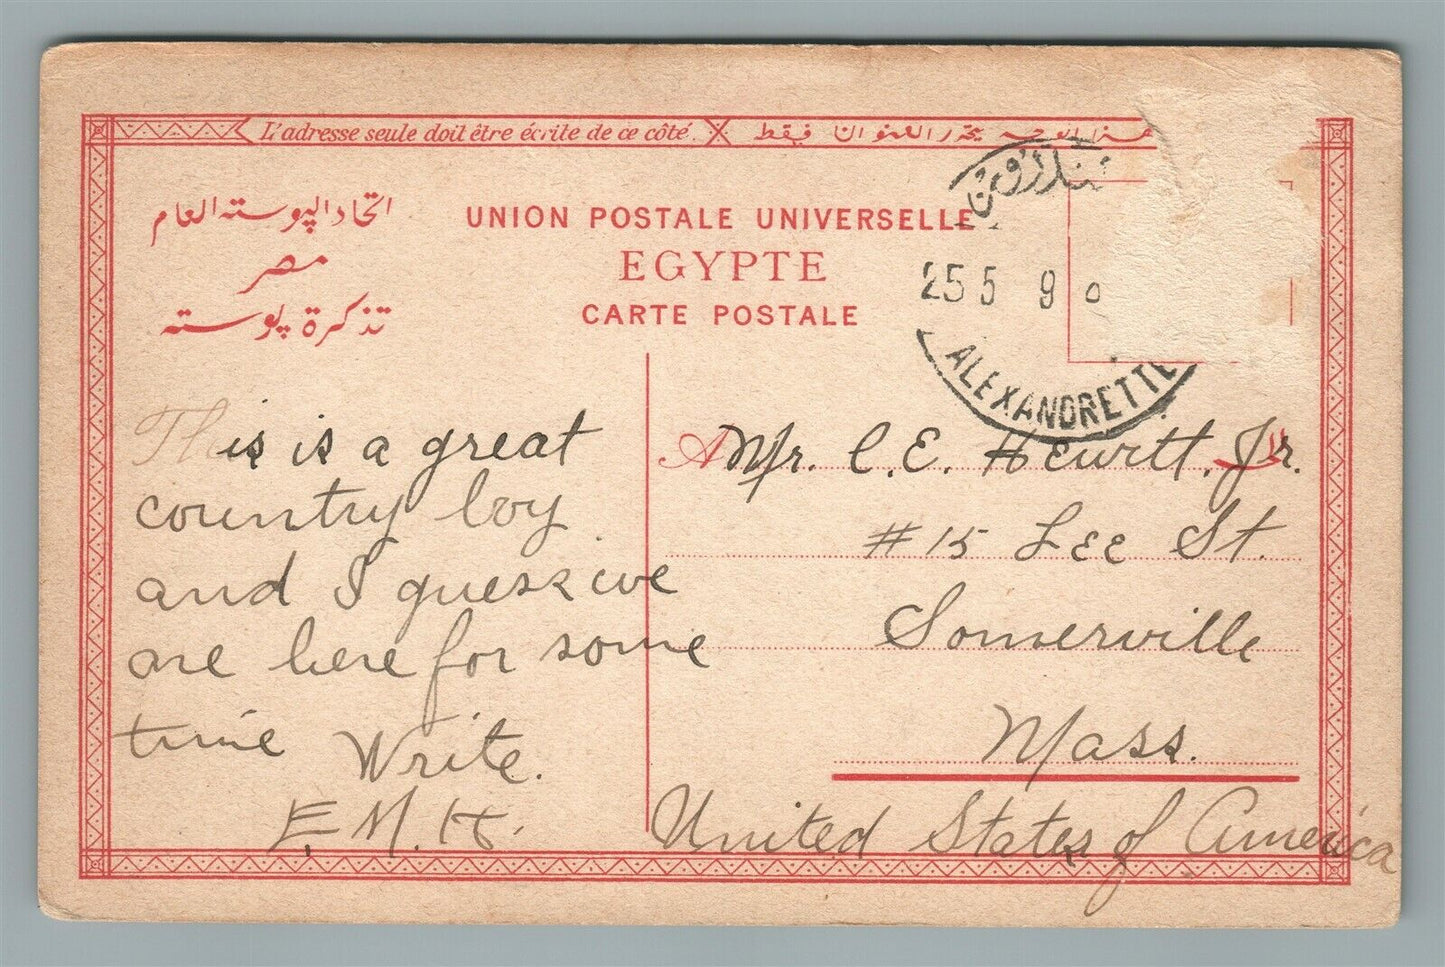 L'adresse seule doit être écrite de ce côté.
هذا الوجه محرر العنوان فقط
اتحاد الپوسته العام
مصر
تذكرة پوسته
UNION POSTALE UNIVERSELLE
EGYPTE
CARTE POSTALE
25 5 9
ALEXANDRETTE
This is a great
country boy
and I guess we
are here for some
time Write.
E. M. H.
A Mr. C. E. Hewitt. Jr.
#15 Lee St.
Somerville
Mass.
United States of America